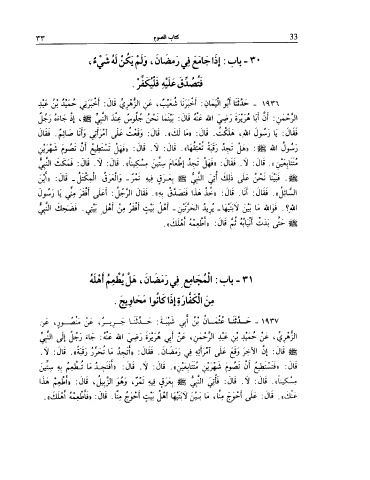 33 كتاب الصوم ٣٣
٣٠ - باب: إِذَا جَامَعَ فِي رَمَضَانَ، وَلَمْ يَكُنْ لَهُ شَيْءٌ،
فَتُصُدِّقَ عَلَيْهِ فَلْيُكَفِّرْ.
١٩٣٦ - حَدَّثَنَا أَبُو الْيَمَانِ: أَخْبَرَنَا شُعَيْبٌ، عَنِ الزُّهْرِيِّ قَالَ: أَخْبَرَنِي حُمَيْدُ بْنُ عَبْدِ
الرَّحْمَنِ: أَنَّ أَبَا هُرَيْرَةَ رَضِيَ اللهُ عَنْهُ قَالَ: بَيْنَمَا نَحْنُ جُلُوسٌ عِنْدَ النَّبِيِّ ﷺ، إِذْ جَاءَهُ رَجُلٌ
فَقَالَ: يَا رَسُولَ اللهِ، هَلَكْتُ. قَالَ: «مَا لَكَ». قَالَ: وَقَعْتُ عَلَى امْرَأَتِي وَأَنَا صَائِمٌ. فَقَالَ
رَسُولُ اللهِ ﷺ: «هَلْ تَجِدُ رَقَبَةً تُعْتِقُهَا». قَالَ: لَا. قَالَ: «فَهَلْ تَسْتَطِيعُ أَنْ تَصُومَ شَهْرَيْنِ
مُتَتَابِعَيْنِ». قَالَ: لَا. فَقَالَ: «فَهَلْ تَجِدُ إِطْعَامَ سِتِّينَ مِسْكِيناً». قَالَ: لَا. قَالَ: فَمَكَثَ النَّبِيُّ
ﷺ، فَبَيْنَا نَحْنُ عَلَى ذَلِكَ أُتِيَ النَّبِيُّ ﷺ بِعَرَقٍ فِيهِ تَمْرٌ - وَالْعَرَقُ الْمِكْتَلُ - قَالَ: «أَيْنَ
السَّائِلُ». فَقَالَ: أَنَا. قَالَ: «خُذْ هَذَا فَتَصَدَّقْ بِهِ». فَقَالَ الرَّجُلُ: أَعَلَى أَفْقَرَ مِنِّي يَا رَسُولَ
اللهِ؟. فَوَاللهِ مَا بَيْنَ لَابَتَيْهَا - يُرِيدُ الْحَرَّتَيْنِ - أَهْلُ بَيْتٍ أَفْقَرُ مِنْ أَهْلِ بَيْتِي. فَضَحِكَ النَّبِيُّ
ﷺ حَتَّى بَدَتْ أَنْيَابُهُ ثُمَّ قَالَ: «أَطْعِمْهُ أَهْلَكَ».
٣١ - باب: الْمُجَامِعِ فِي رَمَضَانَ، هَلْ يُطْعِمُ أَهْلَهُ
مِنَ الْكَفَّارَةِ إِذَا كَانُوا مَحَاوِيجَ.
١٩٣٧ - حَدَّثَنَا عُثْمَانُ بْنُ أَبِي شَيْبَةَ: حَدَّثَنَا جَرِيرٌ، عَنْ مَنْصُورٍ، عَنِ
الزُّهْرِيِّ، عَنْ حُمَيْدِ بْنِ عَبْدِ الرَّحْمَنِ، عَنْ أَبِي هُرَيْرَةَ رَضِيَ اللهُ عَنْهُ: جَاءَ رَجُلٌ إِلَى النَّبِيِّ
ﷺ قَالَ: إِنَّ الْآخِرَ وَقَعَ عَلَى امْرَأَتِهِ فِي رَمَضَانَ. فَقَالَ: «أَتَجِدُ مَا تُحَرِّرُ رَقَبَةً». قَالَ: لَا.
قَالَ: «فَتَسْتَطِيعُ أَنْ تَصُومَ شَهْرَيْنِ مُتَتَابِعَيْنِ». قَالَ: لَا. قَالَ: «أَفَتَجِدُ مَا تُطْعِمُ بِهِ سِتِّينَ
مِسْكِيناً». قَالَ: لَا. قَالَ: فَأُتِيَ النَّبِيُّ ﷺ بِعَرَقٍ فِيهِ تَمْرٌ، وَهُوَ الزَّبِيلُ، قَالَ: «أَطْعِمْ هَذَا
عَنْكَ». قَالَ: عَلَى أَحْوَجَ مِنَّا، مَا بَيْنَ لَابَتَيْهَا أَهْلُ بَيْتٍ أَحْوَجُ مِنَّا. قَالَ: «فَأَطْعِمْهُ أَهْلَكَ».